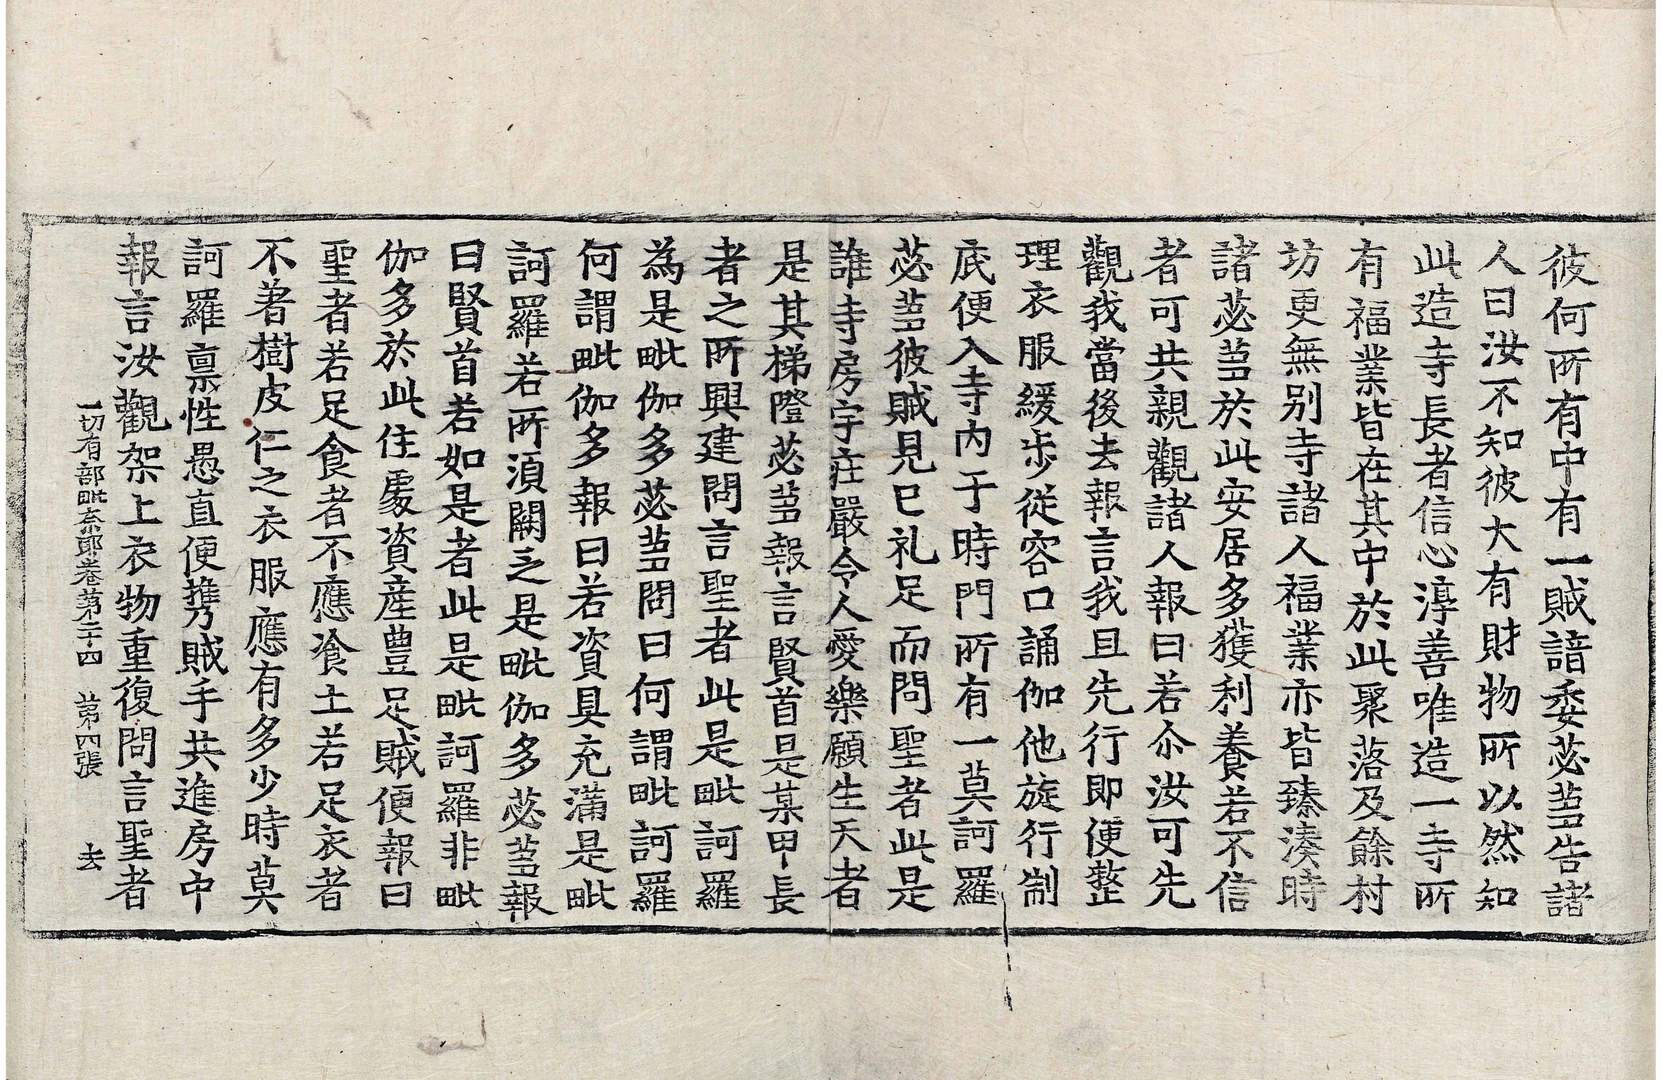 彼何所有中有一賊諳委苾芻告諸
人曰汝不知彼大有財物所以然知
此造寺長者信心淳善唯造一寺所
有福業皆在其中於此聚落及餘村
坊更無別寺諸人福業亦皆臻湊時
諸苾芻於此安居多獲利養若不信
者可共親觀諸人報曰若尒汝可先
觀我當後去報言我且先行即便整
理衣服緩步從容口誦伽他旋行制
底便入寺內于時門所有一莫訶羅
苾芻彼賊見已礼足而問聖者此是
誰寺房宇莊嚴令人愛樂願生天者
是其梯隥苾芻報言賢首是某甲長
者之所興建問言聖者此是毗訶羅
為是毗伽多苾芻問曰何謂毗訶羅
何謂毗伽多報曰若資具充滿是毗
訶羅若所須闕乏是毗伽多苾芻報
曰賢首若如是者此是毗訶羅非毗
伽多於此住處資產豊足賊便報曰
聖者若足食者不應飡土若足衣者
不著樹皮仁之衣服應有多少時莫
訶羅禀性愚直便携賊手共進房中
報言汝觀架上衣物重復問言聖者
一切有部毗奈耶卷第二十四　第四張　去